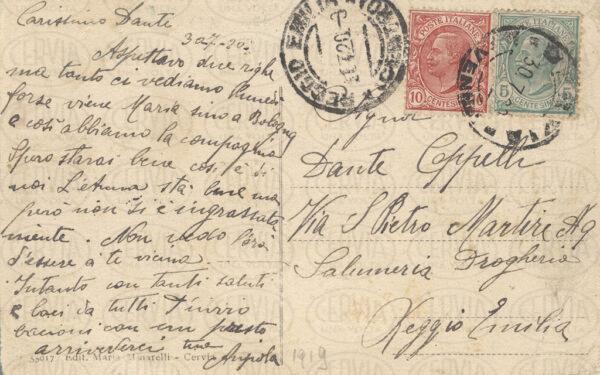 Carissimo Dante
30-7-20
Aspettavo due righe
ma tanto ci vediamo lunedì
forse viene Maria sino a Bologna
e così abbiamo la compagnia
Spero starai bene così è di
noi L'Emma sta bene ma
però non si è ingrassata
mente. Non vedo l'ora
d'essere a te vicina
Intanto con tanti saluti
e baci da tutti T'invio
bacioni con un presto
arrivederci tua
53017 Edit. Maria Manarelli - Cervia
1919
REGGIO EMILIA
POSTE ITALIANE
10 CENTESIMI 10
POSTE ITALIANE
5 CENTESIMI 5
30.7
Signor
Dante Coppelli
Via S Pietro Martire
Salumeria Drogheria
Reggio Emilia